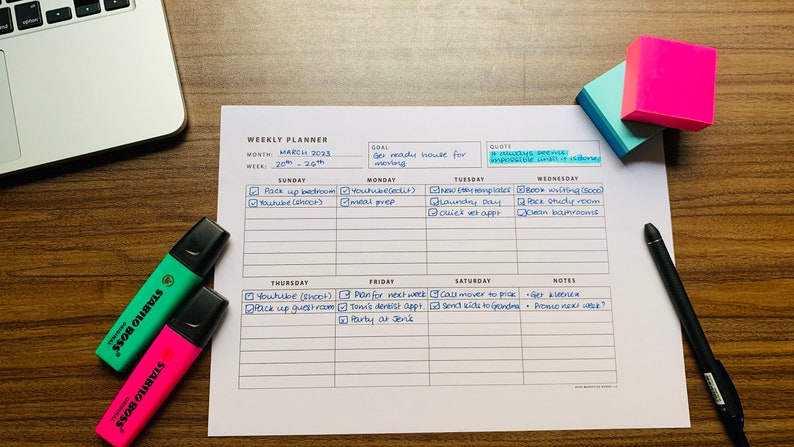 WEEKLY PLANNER
MONTH: MARCH 2023
WEEK: 20th - 26th
GOAL
Get ready house for
moving
QUOTE
It always seems
impossible until it is done
SUNDAY
Pack up bedroom
Youtube (shoot)
MONDAY
Youtube (edit)
meal prep
TUESDAY
New Etsy templates
Laundry Day
Ollie's vet appt
WEDNESDAY
Book writing (5000)
Pack study room
Clean bathrooms
THURSDAY
Youtube (shoot)
Pack up guest room
FRIDAY
Plan for next week
Tom's dentist appt.
Party at Jen's
SATURDAY
Call mover to pick
Send kids to Grandma
NOTES
• Get kleenex
• Promo next week?
STABILO BOSS
ORIGINAL
STABILO BOSS
ORIGINAL